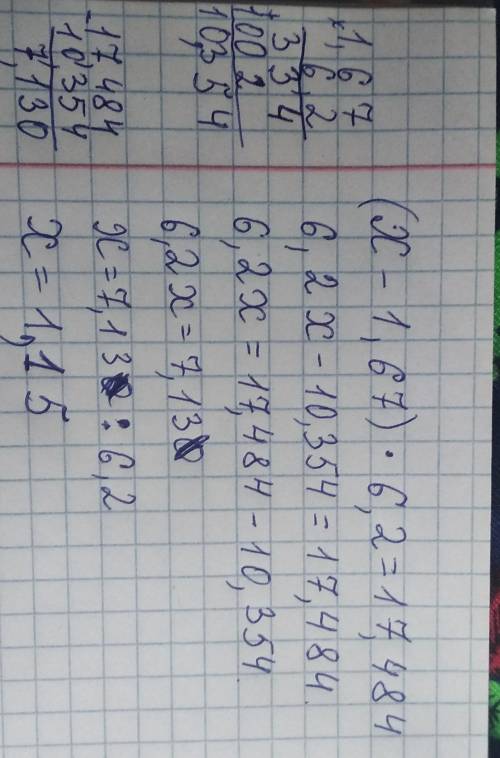 1,67
× 6,2
334
+
1002
10,354
17,484
- 10,354
7,130
(x - 1,67) · 6,2 = 17,484
6,2x - 10,354 = 17,484
6,2x = 17,484 - 10,354
6,2x = 7,13
x = 7,13 : 6,2
x = 1,15